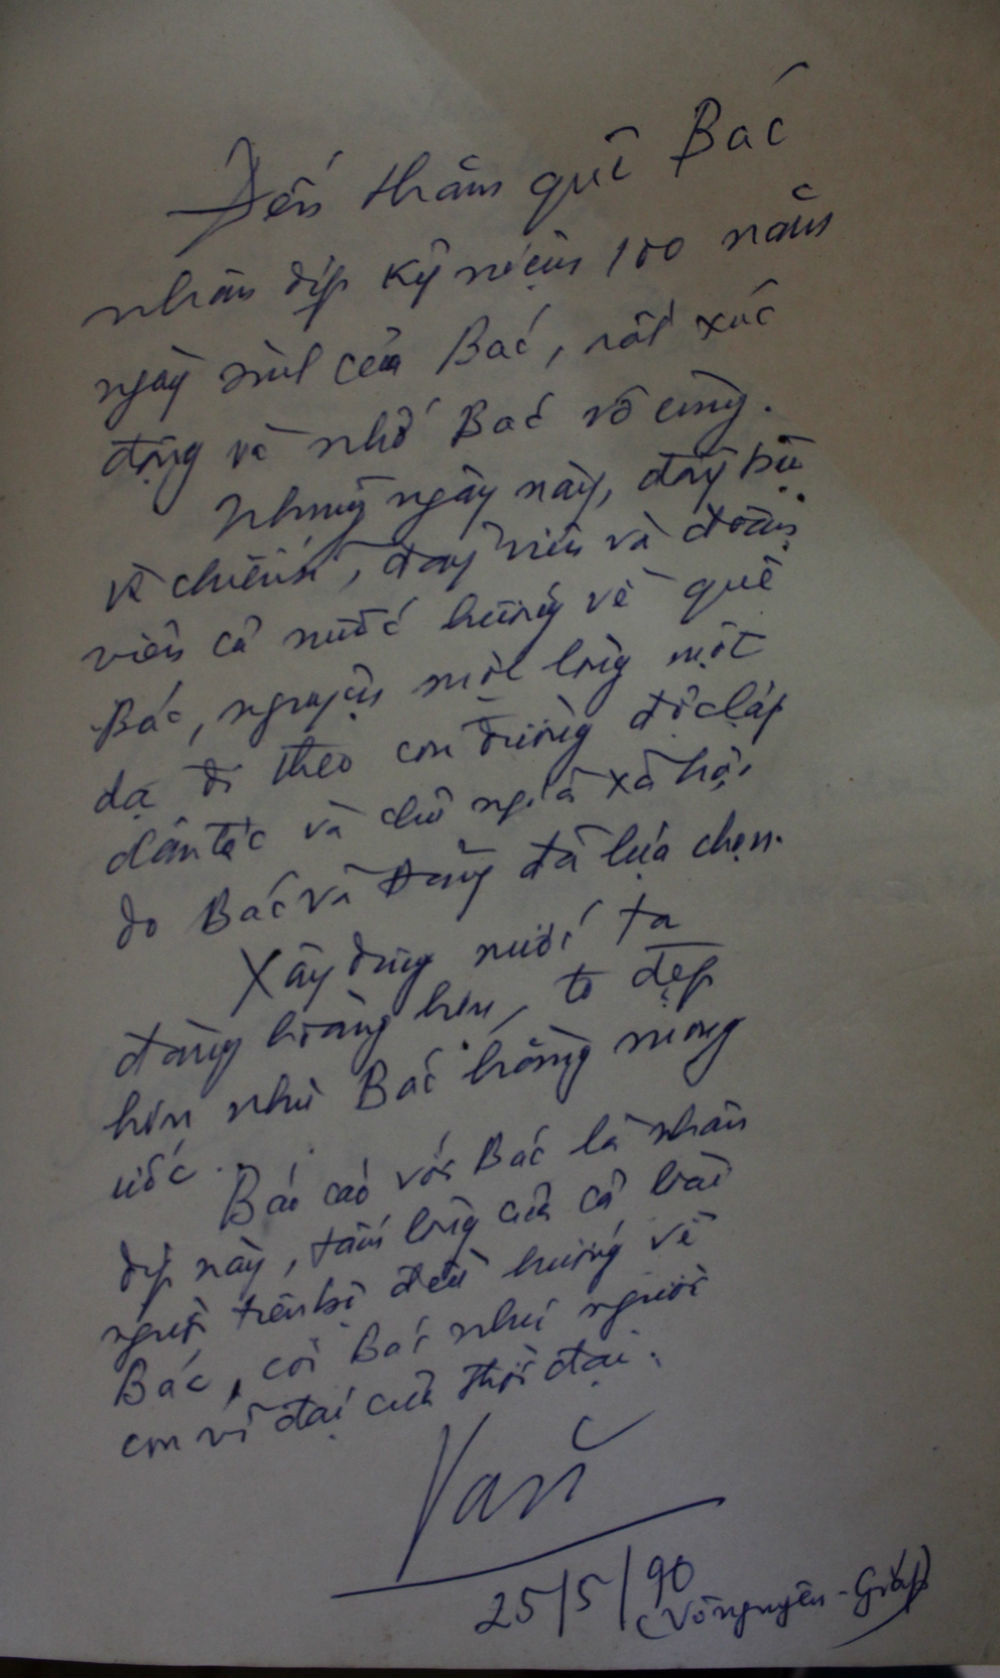 Đến thăm quê Bác
nhân dịp kỷ niệm 100 năm
ngày sinh của Bác, rất xúc
động và nhớ Bác vô cùng.
Những ngày này, đồng bào
và chiến sĩ, đảng viên và đoàn
viên cả nước hướng về quê
Bác, nguyện một lòng một
dạ đi theo con đường độc lập
dân tộc và chủ nghĩa xã hội
do Bác và Đảng đã lựa chọn.
Xây dựng nước ta
đàng hoàng hơn, to đẹp
hơn như Bác hằng mong
ước.
Báo cáo với Bác là nhân
dịp này, tấm lòng của cả loài
người tiến bộ đều hướng về
Bác, coi Bác như người
con vĩ đại của thời đại.
Văn
25/5/90
(Võ nguyên - Giáp)